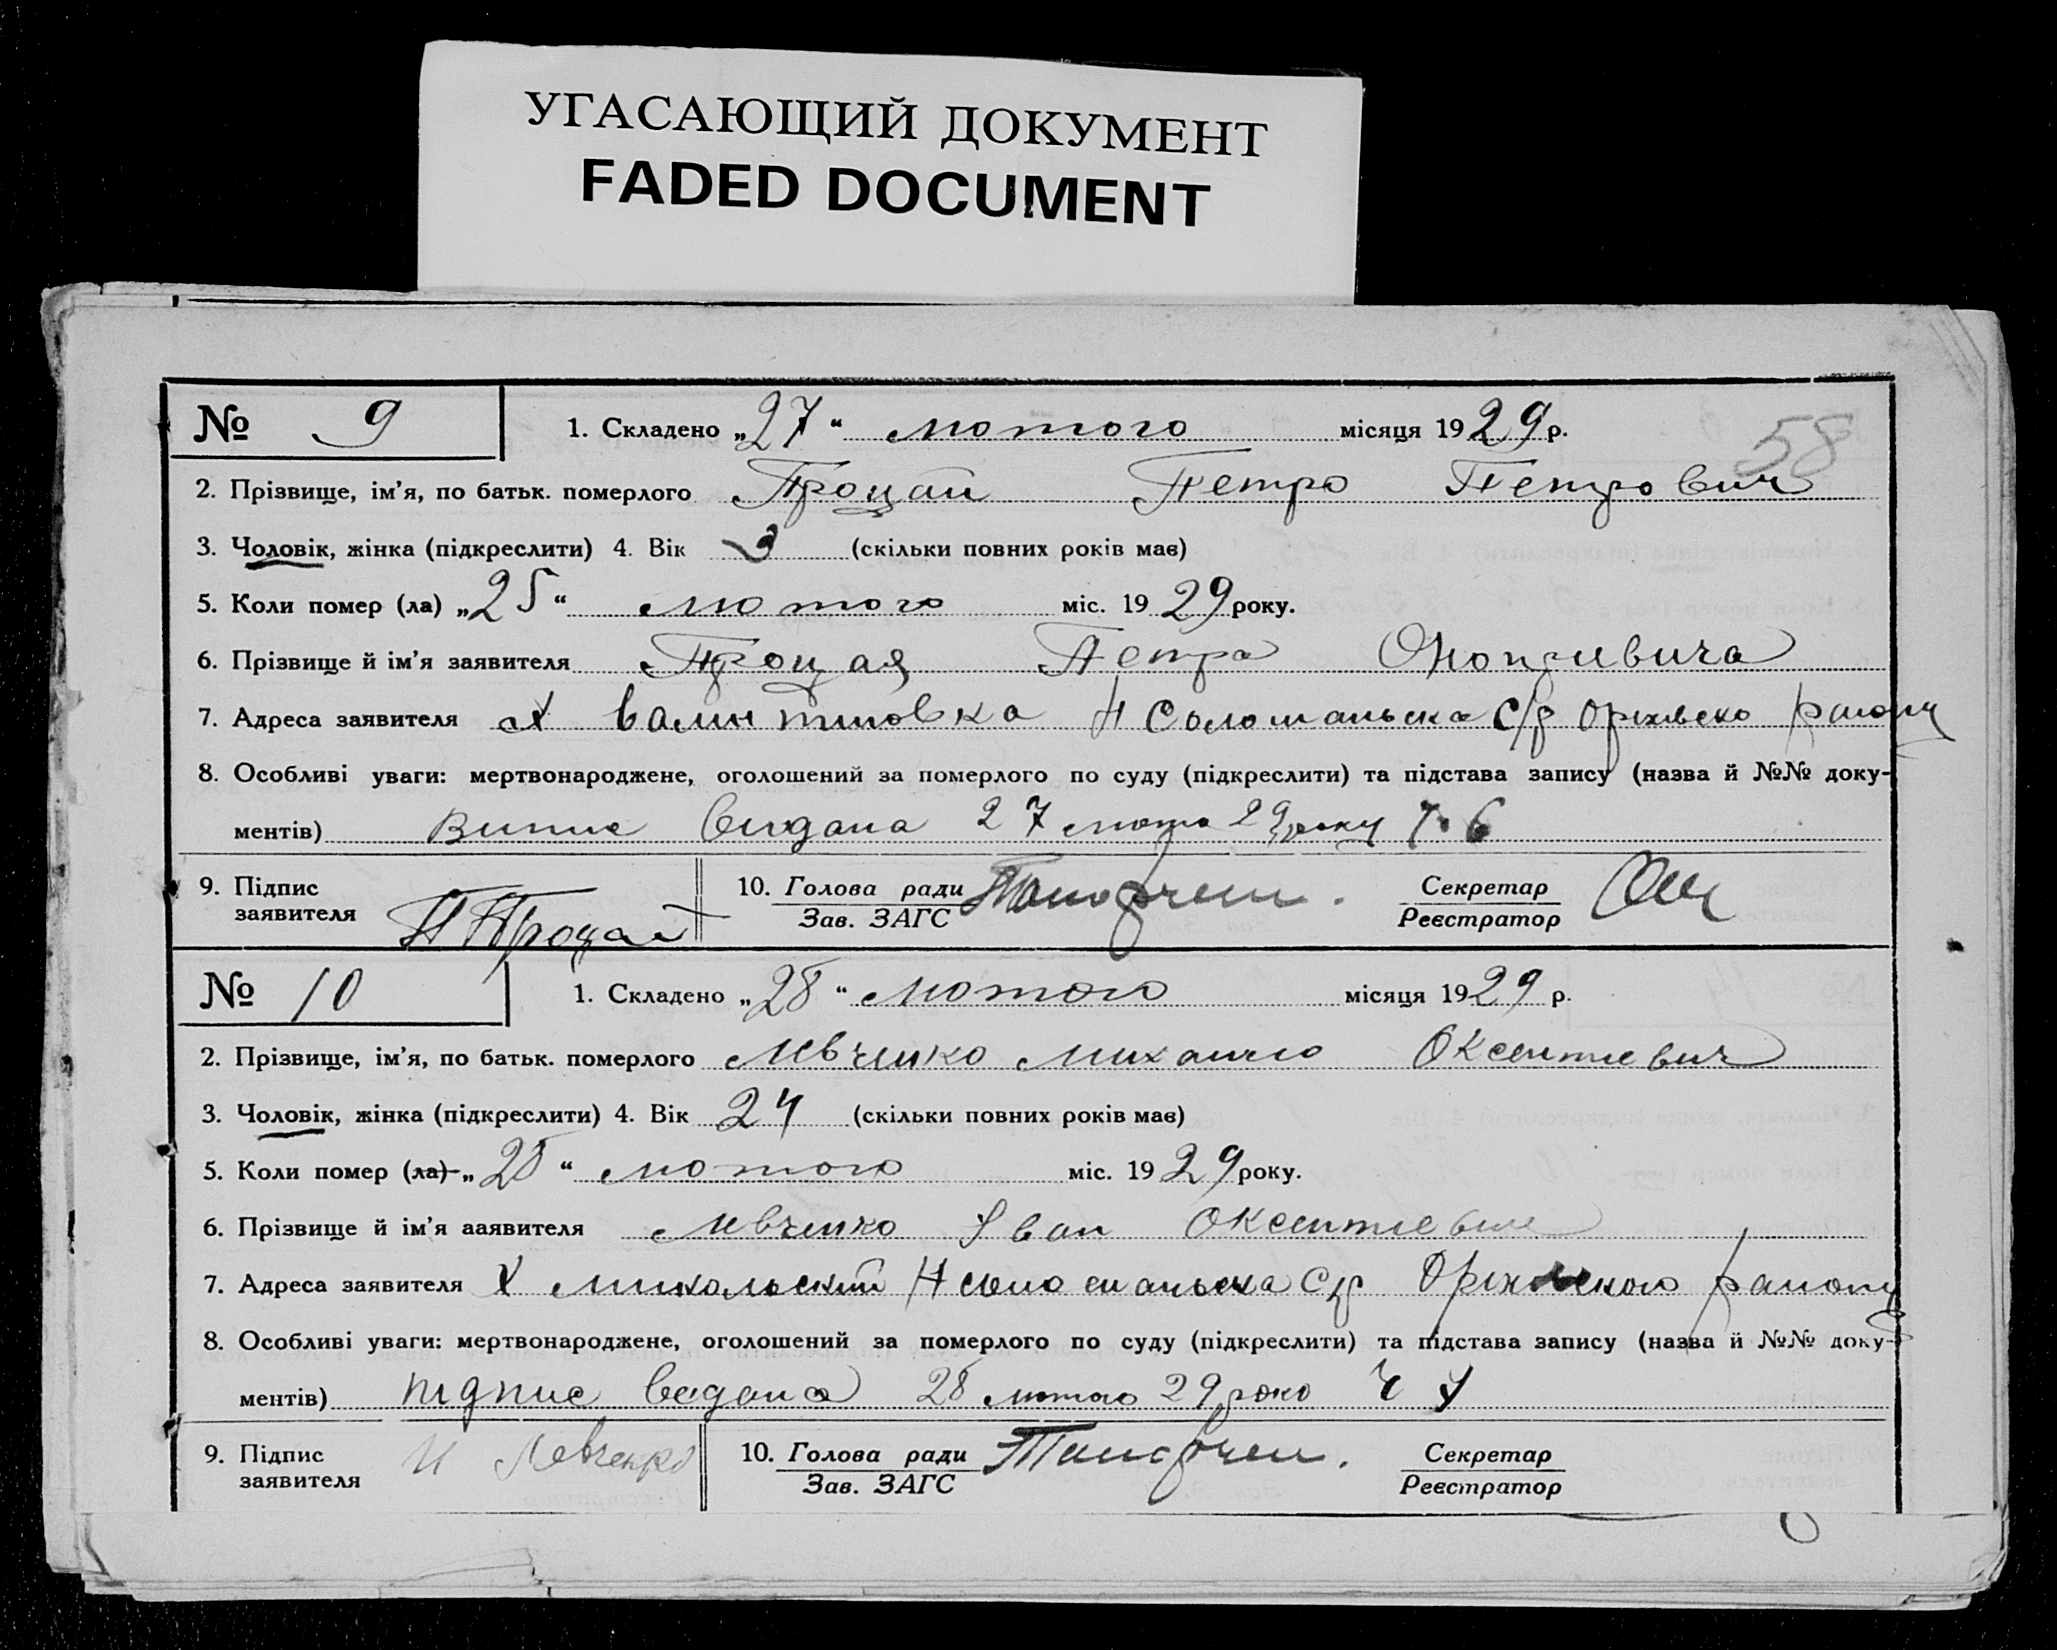 УГАСАЮЩИЙ ДОКУМЕНТ
FADED DOCUMENT
58
№ 9 1. Складено „27“ лютого місяця 1929 р.
2. Прізвище, ім'я, по батьк. померлого Процай Петро Петрович
3. Чоловік, жінка (підкреслити) 4. Вік 3 (скільки повних років має)
5. Коли помер (ла) „25“ лютого міс. 1929 року.
6. Прізвище й ім'я заявителя Процая Петра
7. Адреса заявителя х с/р району
8. Особливі уваги: мертвонароджене, оголошений за померлого по суду (підкреслити) та підстава запису (назва й №№ доку-
ментів) Випис видана 27 29 року 6
9. Підпис заявителя П Процай 10. Голова ради Зав. ЗАГС Секретар Реєстратор
№ 10 1. Складено „28“ лютого місяця 1929 р.
2. Прізвище, ім'я, по батьк. померлого Левченко Михайло Оксентиевич
3. Чоловік, жінка (підкреслити) 4. Вік 24 (скільки повних років має)
5. Коли помер (ла) „28“ лютого міс. 1929 року.
6. Прізвище й ім'я ааявителя Левченко Іван
7. Адреса заявителя Х Микольский району
8. Особливі уваги: мертвонароджене, оголошений за померлого по суду (підкреслити) та підстава запису (назва й №№ доку-
ментів) підпис 28 лютого 29 року
9. Підпис заявителя И Левченко 10. Голова ради Зав. ЗАГС Секретар Реєстратор